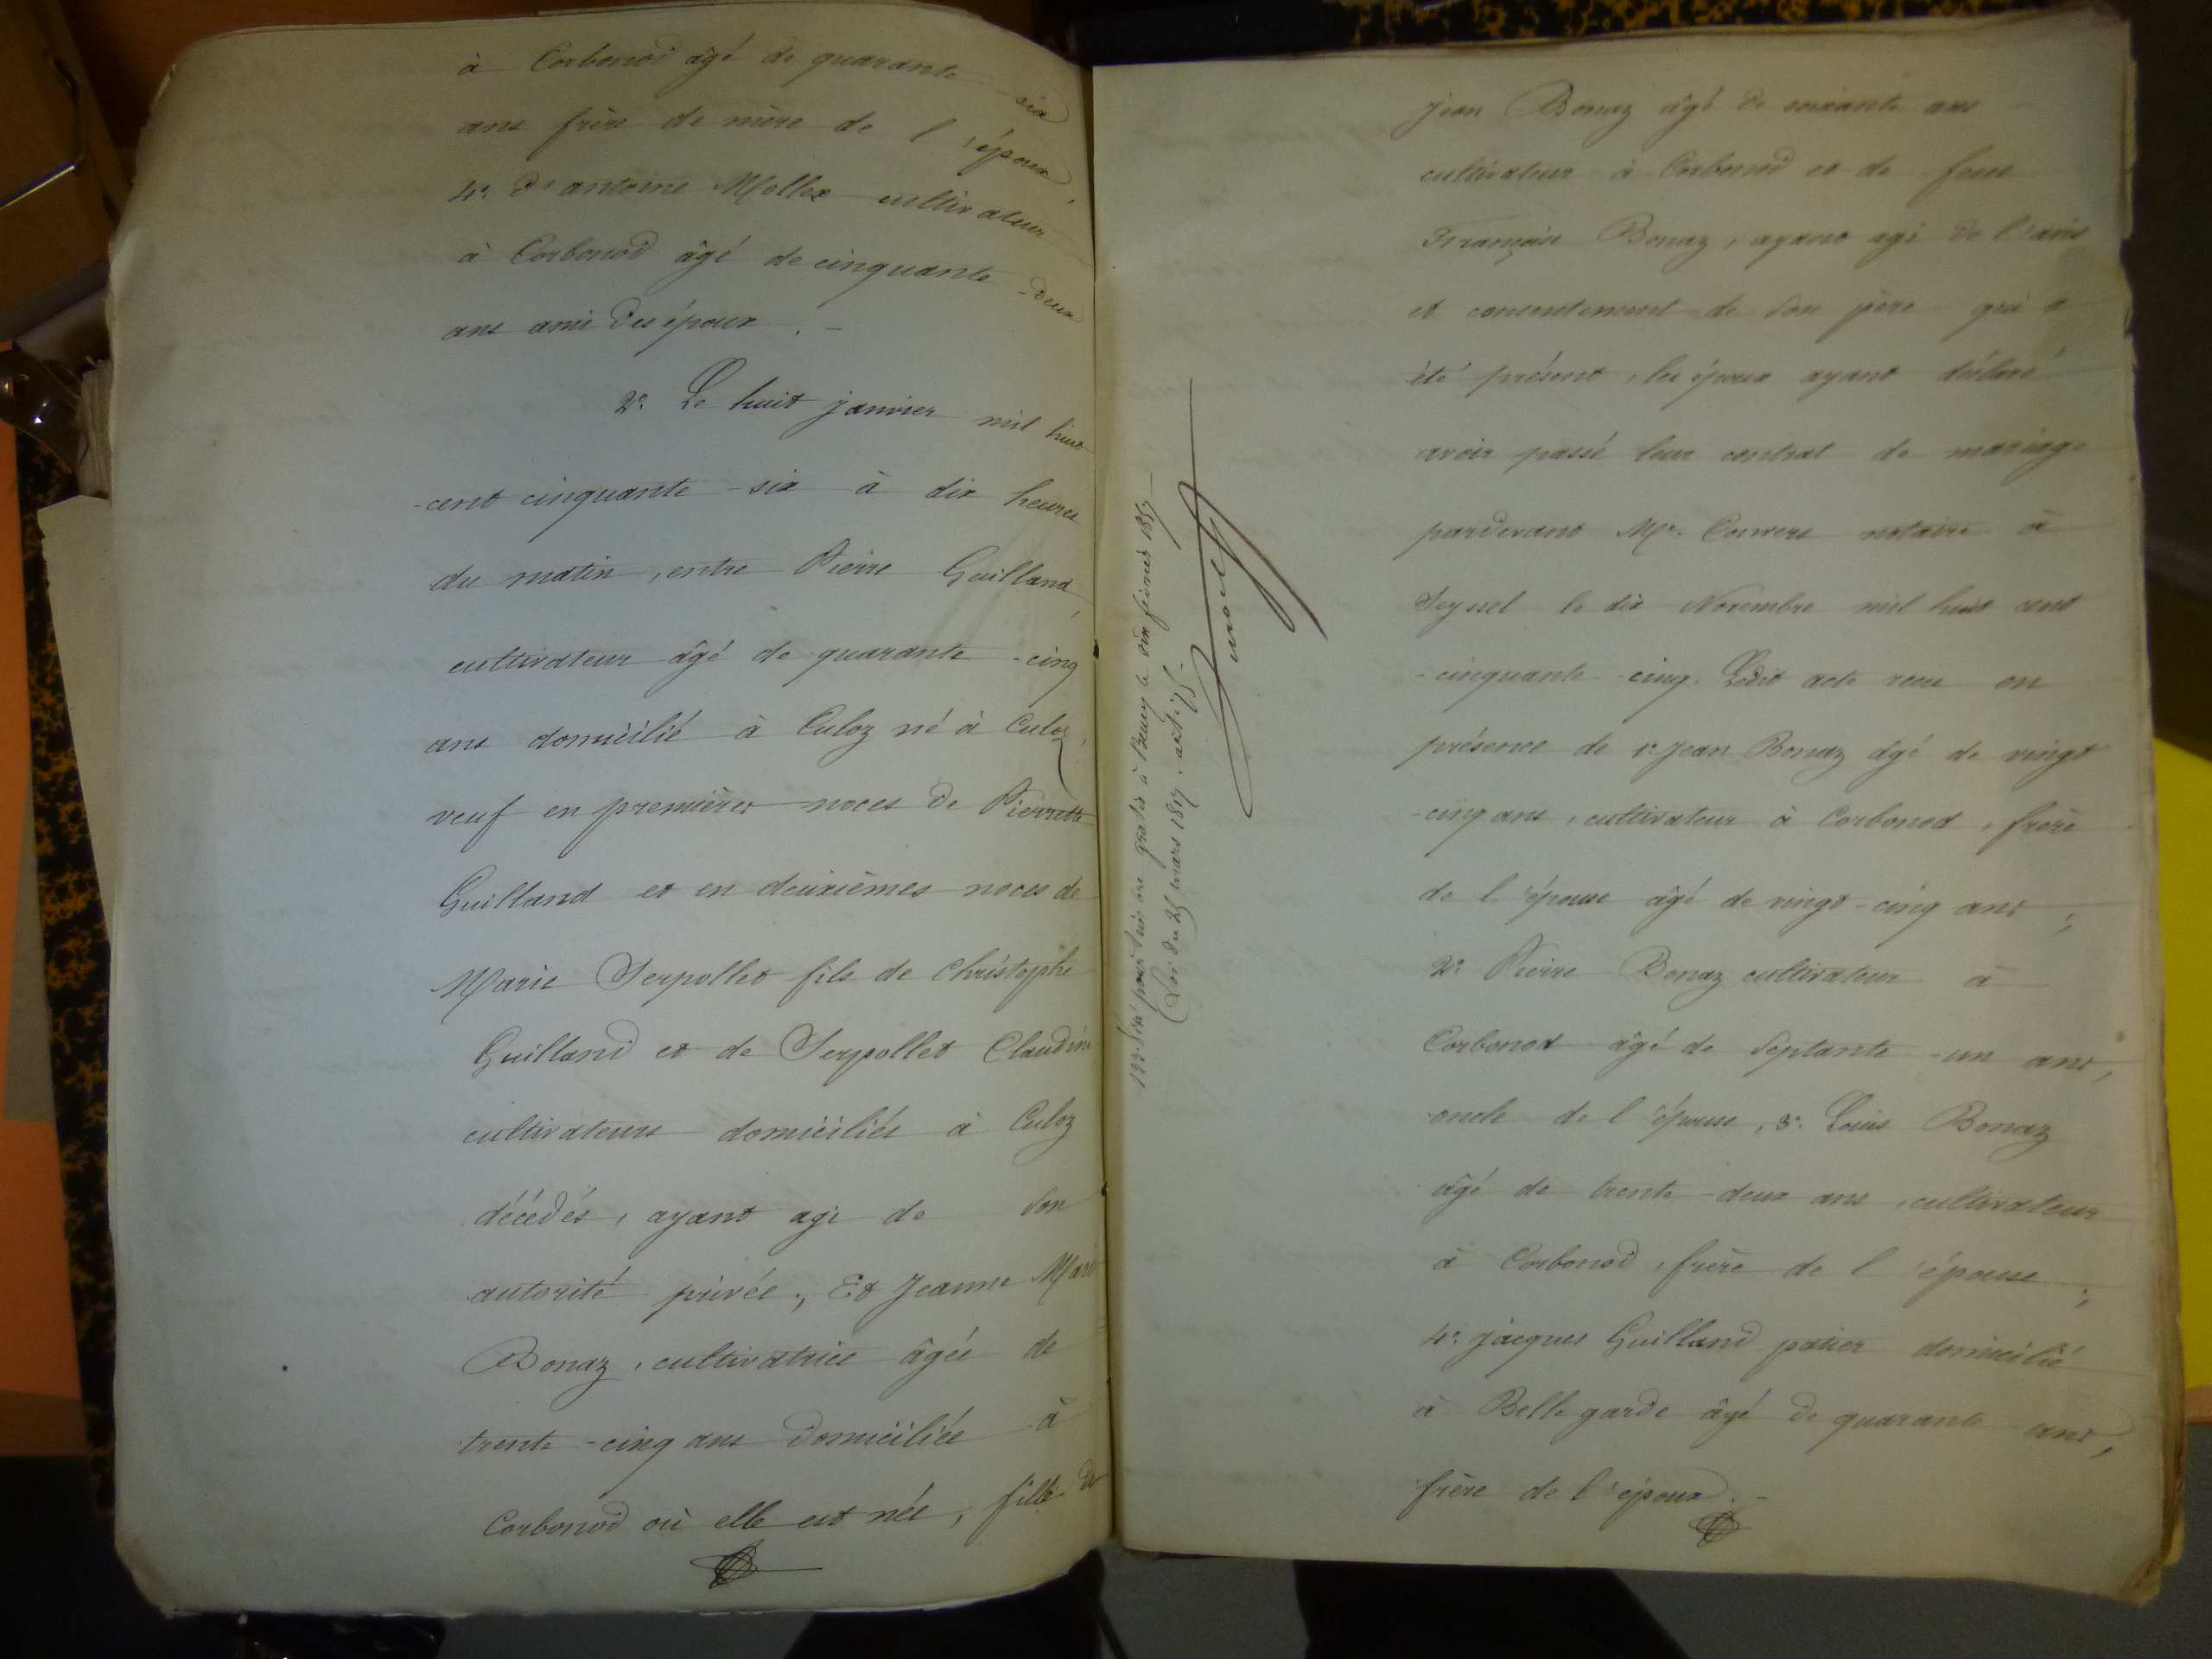 à Corbonod âgé de quarante-six
ans frère de mère de l'époux,
4°. d'antoine Mollex cultivateur
à Corbonod âgé de cinquante-deux
ans ami des époux. -
2°. Le huit janvier mil huit
-cent cinquante-six à dix heures
du matin, entre Pierre Guilland,
cultivateur âgé de quarante-cinq
ans domicilié à Culoz né à Culoz,
veuf en premières noces de Pierrette
Guilland et en deuxièmes noces de
Marie Serpollet fils de Christophe
Guilland et de Serpollet Claudine
cultivateurs domiciliés à Culoz
décédés, ayant agi de son
autorité privée, Et Jeanne Marie
Bonaz, cultivatrice âgée de
trente-cinq ans domiciliée à
Corbonod où elle est née, fille de
jean Bonaz âgé de soixante ans
cultivateur à Corbonod et de feue
Françoise Bonaz, ayant agi de l'avis
et consentement de son père qui a
été présent, les époux ayant déclaré
avoir passé leur contrat de mariage
pardevant Me. Convers notaire à
Seyssel le dix Novembre mil huit cent
-cinquante-cinq. Ledit acte reçu en
présence de 1°. Jean Bonaz âgé de vingt
-cinq ans, cultivateur à Corbonod, frère
de l'épouse âgé de vingt-cinq ans;
2°. Pierre Bonaz cultivateur à
Corbonod âgé de septante-un ans,
oncle de l'épouse, 3°. Louis Bonaz
âgé de trente-deux ans, cultivateur
à Corbonod, frère de l'épouse;
4°. jacques Guilland potier domicilié
à Bellegarde âgé de quarante ans,
frère de l'époux. -
Visé pour timbre gratis à février 1857 -
Loi du 25 mars 1817. art. 75.